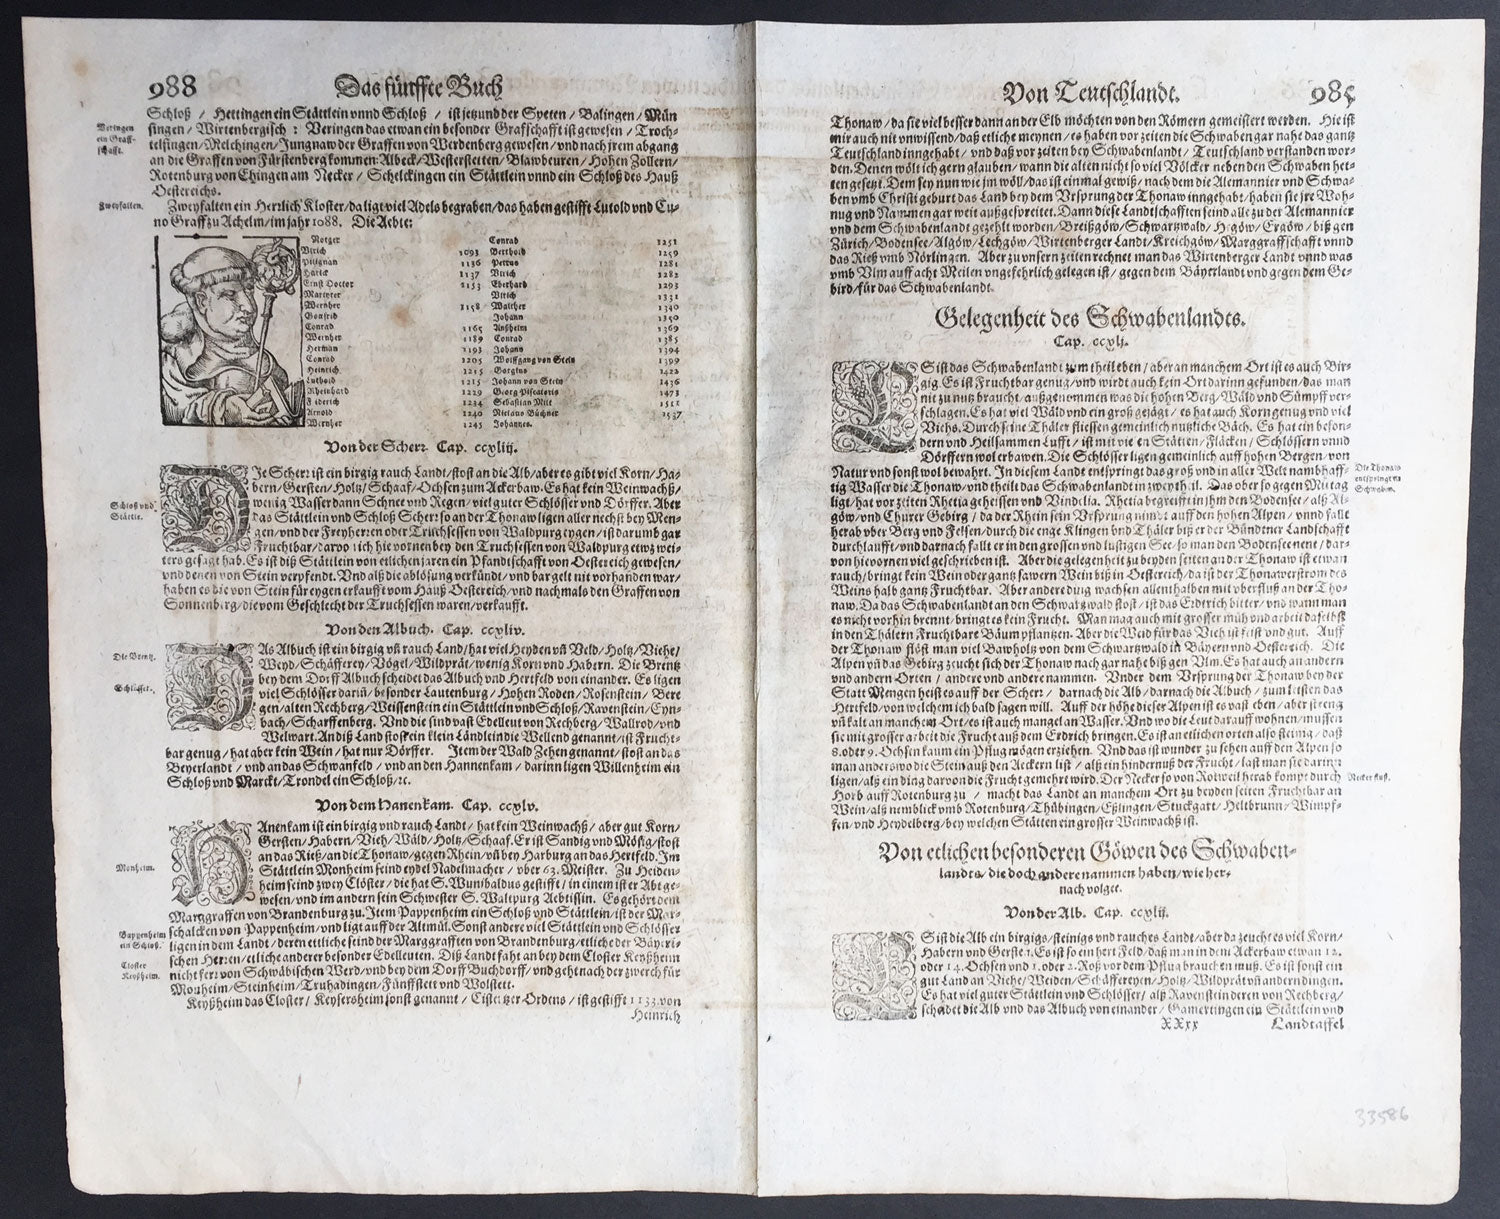 988 Das fünffte Buch
Schloß / Hettingen ein Stättlein vnnd Schloß / ist jetzund der Speten / Balingen / Mün
singen / Wirtenbergisch : Veringen das etwan ein besonder Graffschafft ist gewesen / Troch-
telfingen / Melchingen / Jungnaw der Graffen von Werdenberg gewesen / vnd nach jrem abgang
an die Graffen von Fürstenberg kommen: Albeck / Westerstetten / Blawbeuren / Hohen Zollern /
Rotenburg von Ehingen am Necker / Schelckingen ein Stättlein vnnd ein Schloß des Hauß
Oestereichs.
Veringen
ein Graff-
schafft.
Zweyfalten ein Herrlich Kloster / da ligt viel Adels begraben / das haben gestifft Lutold vnd Cu-
no Graff zu Achelm / im jahr 1088. Die Aebte:
Zweyfalten.
Notger
Vlrich 1093
Pilignan 1136
Harick 1137
Ernst Doctor 1153
Martyrer
Wernher 1158
Gonfrid
Conrad 1165
Wernher 1189
Herman 1193
Conrad 1205
Heinrich 1215
Luthold 1215
Rheinhard 1229
Friderich 1234
Arnold 1240
Wernher 1245
Conrad 1251
Berthold 1259
Petrus 1281
Vlrich 1282
Eberhard 1293
Vlrich 1331
Walther 1340
Johann 1350
Anßheim 1369
Conrad 1385
Johann 1394
Wolffgang von Stein 1399
Gorgius 1422
Johann von Stein 1436
Georg Piscatoris 1473
Sebastian Milt 1512
Niclaus Büchner 1537
Johannes.
Von der Scherr. Cap. ccxliij.
DJe Scherr ist ein birgig rauch Landt / stost an die Alb / aber es gibt viel Korn / Ha-
bern / Gersten / Holtz / Schaaf / Ochsen zum Ackerbaw. Es hat kein Weinwachß /
wenig Wasser dann Schnee vnd Regen / viel guter Schlösser vnd Dörffer. Aber
das Stättlein vnd Schloß Scherr so an der Thonaw ligen aller nechst bey Men-
gen / vnd der Freyherren oder Truchsessen von Waldpurg eygen / ist darumb gar
Fruchtbar / darvon ich hie vornen bey den Truchsessen von Waldpurg etwz wei-
ters gesagt hab. Es ist diß Stättlein von etlichen jaren ein Pfandtschafft von Oestereich gewesen /
vnd denen von Stein verpfendt. Vnd alß die ablösung verkündt / vnd bar gelt nit vorhanden war /
haben es die von Stein für eygen erkaufft vom Hauß Oestereich / vnd nachmals den Graffen von
Sonnenberg / die vom Geschlecht der Truchsessen waren / verkaufft.
Schloß vnd
Stättle.
Von den Albuch. Cap. ccxliv.
DAs Albuch ist ein birgig vñ rauch Land / hat viel Heyden vñ Veld / Holtz / Viehe /
Weyd / Schäfferey / Vögel / Wildprät / wenig Korn vnd Habern. Die Brentz
bey dem Dorff Albuch scheidet das Albuch vnd Hertfeld von einander. Es ligen
viel Schlösser dariñ / besonder Lautenburg / Hohen Roden / Rosenstein / Bere
gen / alten Rechberg / Weissenstein ein Stättlein vnd Schloß / Ravenstein / Eyn-
bach / Scharffenberg. Vnd die sind vast Edelleut von Rechberg / Wallrod / vnd
Welwart. An diß Land stost ein klein Ländlein die Wellend genannt / ist Frucht-
bar genug / hat aber kein Wein / hat nur Dörffer. Jtem der Wald Zehen genannt / stost an das
Beyerlandt / vnd an das Schwanfeld / vnd an den Hannenkam / darinn ligen Willenheim ein
Schloß vnd Marckt / Trondel ein Schloß / ꝛc.
Die Brentz.
Schlösser.
Von dem Hanenkam. Cap. ccxlv.
HAnenkam ist ein birgig vnd rauch Landt / hat kein Weinwachß / aber gut Korn /
Gersten / Habern / Vieh / Wäld / Holtz / Schaaf. Er ist Sandig vnd Mösig / stost
an das Rieß / an die Thonaw / gegen Rhein / vñ bey Harburg an das Hertfeld. Im
Stättlein Monheim seind eydel Nadelmacher / vber 63. Meister. Zu Heiden-
heim seind zwey Clöster / die hat S. Wunibaldus gestifft / in einem ist er Abt ge-
wesen / vnd im andern sein Schwester S. Waltpurg Aebtissin. Es gehört dem
Marggraffen von Brandenburg zu. Jtem Pappenheim ein Schloß vnd Stättlein / ist der Mar-
schalcken von Pappenheim / vnd ligt auff der Altmül. Sonst andere viel Stättlein vnd Schlösser
ligen in dem Landt / deren ettliche seind der Marggraffen von Brandenburg / ettliche der Bäyeri-
schen Herren / etliche anderer besonder Edelleuten. Diß Landt faht an bey dem Closter Keyßheim
nicht ferr von Schwäbischen Werd / vnd bey dem Dorff Buchdorff / vnd geht nach der zwerch für
Monheim / Steinheim / Truhadingen / Fünffstett vnd Wolstett.
Keyßheim das Closter / Keysersheim sonst genannt / Cistertzer Ordens / ist gestifft 1133. von
Heinrich
Monheim.
Bappenheim
ein Schloß.
Closter
Keyßheim.
Von Teutschlandt. 985
Thonaw / da sie viel besser dann an der Elb möchten von den Römern gemeistert werden. Hie ist
mir auch nit vnwissend / daß etliche meynen / es haben vor zeiten die Schwaben gar nahe das gantz
Teutschland inngehabt / vnd daß vor zeiten bey Schwabenlandt / Teutschland verstanden wor-
den. Denen wölt ich gern glauben / wann die alten nicht so viel Völcker neben den Schwaben het-
ten gesetzt. Dem sey nun wie jm wöll / das ist einmal gewiß / nach dem die Alemannier vnd Schwa-
ben vmb Christi geburt das Land bey dem Vrsprung der Thonaw inngehabt / haben sie jre Woh-
nug vnd Nammen gar weit außgespreitet. Dann diese Landtschafften seind alle zu der Alemannier
vnd dem Schwabenlandt gezehlt worden / Breißgöw / Schwartzwald / Hegöw / Ergöw / biß gen
Zürich / Bodensee / Algöw / Lechgöw / Wirtenberger Landt / Kreichgöw / Marggraffschafft vnnd
das Rieß vmb Nörlingen. Aber zu vnsern zeiten rechnet man das Wirtenberger Landt vnnd was
vmb Vlm auff acht Meilen vngefehrlich gelegen ist / gegen dem Bäyerlandt vnd gegen dem Ge-
bird / für das Schwabenlandt.
Gelegenheit des Schwabenlandts.
Cap. ccxlj.
ES ist das Schwabenlandt zum theil eben / aber an manchem Ort ist es auch Bir-
gig. Es ist Fruchtbar genug / vnd wirdt auch kein Ort darinn gefunden / das man
nit zu nutz braucht / außgenommen was die hohen Berg / Wäld vnd Sümpff ver-
schlagen. Es hat viel Wäld vnd ein groß gejägt / es hat auch Korn genug vnd viel
Viehs. Durch seine Thäler fliessen gemeinlich nutzliche Bäch. Es hat ein beson-
dern vnd Heilsammen Lufft / ist mit vielen Stätten / Fläcken / Schlössern vnnd
Dörffern wol erbawen. Die Schlösser ligen gemeinlich auff hohen Bergen / von
Natur vnd sonst wol bewahrt. In diesem Landt entspringt das groß vnd in aller Welt namhaff-
tig Wasser die Thonaw / vnd theilt das Schwabenland in zwey theil. Das ober so gegen Mittag
ligt / hat vor zeiten Rhetia geheissen vnd Vindelia. Rhetia begreifft in jhm den Bodensee / alß Al-
göw / vnd Churer Gebirg / da der Rhein sein Vrsprung nimbt auff den hohen Alpen / vnnd fallt
herab vber Berg vnd Felsen / durch die enge Klingen vnd Thäler biß er der Bündtner Landschafft
durchlaufft / vnd darnach fallt er in den grossen vnd lustigen See / so man den Bodensee nent / dar-
von hievornen viel geschrieben ist. Aber die gelegenheit zu beyden seiten an der Thonaw ist etwan
rauch / bringt kein Wein oder gantz sawern Wein biß in Oestreich / da ist der Thonawerstrom des
Weins halb gantz Fruchtbar. Aber andere ding wachsen allenthalben mit vberfluß an der Tho-
naw. Da das Schwabenland an den Schwartzwald stost / ist das Erdtrich bitter / vnd wann man
es nicht vorhin brennt / bringt es kein Frucht. Man mag auch mit grosser müh vnd arbeit daselbst
in den Thälern Fruchtbare Bäum pflantzen. Aber die Weid für das Vieh ist feist vnd gut. Auff
der Thonaw flöst man viel Bawholtz von dem Schwartzwald in Bäyern vnd Oestereich. Die
Alpen vñ das Gebirg zeucht sich der Thonaw nach gar nahe biß gen Vlm. Es hat auch an andern
vnd andern Orten / andere vnd andere nammen. Vnder dem Vrsprung der Thonaw bey der
Statt Mengen heist es auff der Scherr / darnach die Alb / darnach die Albuch / zum letsten das
Hertfeld / von welchem ich bald sagen will. Auff der höhe dieser Alpen ist es vast eben / aber streng
vñ kalt an manchem Ort / es ist auch mangel an Wasser. Vnd wo die Leut darauff wohnen / müssen
sie mit grosser arbeit die Frucht auß dem Erdrich bringen. Es ist an etlichen orten also steinig / daß
8. oder 9. Ochsen kaum ein Pflug mögen erziehen. Vnd das ist wunder zu sehen auff den Alpen so
man anderswo die Stein auß den Aeckern list / alß ein hindernuß der Frucht / last man sie darinn
ligen / alß ein ding darvon die Frucht gemehrt wird. Der Necker so von Rotweil herab kompt durch
Horb auff Rotenburg zu / macht das Landt an manchem Ort zu beyden seiten Fruchtbar an
Wein / alß nemblich vmb Rotenburg / Thübingen / Eßlingen / Stuckgart / Heltbrunn / Wimpf-
fen / vnd Heydelberg / bey welchen Stätten ein grosser Weinwachß ist.
Die Thonaw
entspringt in
Schwaben.
Necker fluß.
Von etlichen besonderen Göwen des Schwaben-
landts / die doch andere nammen haben / wie her-
nach volget.
Von der Alb. Cap. ccxlij.
ES ist die Alb ein birgigs / steinigs vnd rauches Landt / aber da zeucht es viel Korn /
Habern vnd Gersten. Es ist so ein hert Feld / daß man in dem Ackerbaw etwan 12.
oder 14. Ochsen vnd 1. oder 2. Roß vor dem Pflug brauchen muß. Es ist sonst ein
gut Land an Viehe / Weiden / Schäffereyen / Holtz / Wildprät vñ andern dingen.
Es hat viel guter Stättlein vnd Schlösser / alß Ravenstein deren von Rechberg /
scheidet die Alb vnd das Albuch von einander / Gamertingen ein Stättlein vnd
XXxx Landtaffel
33586